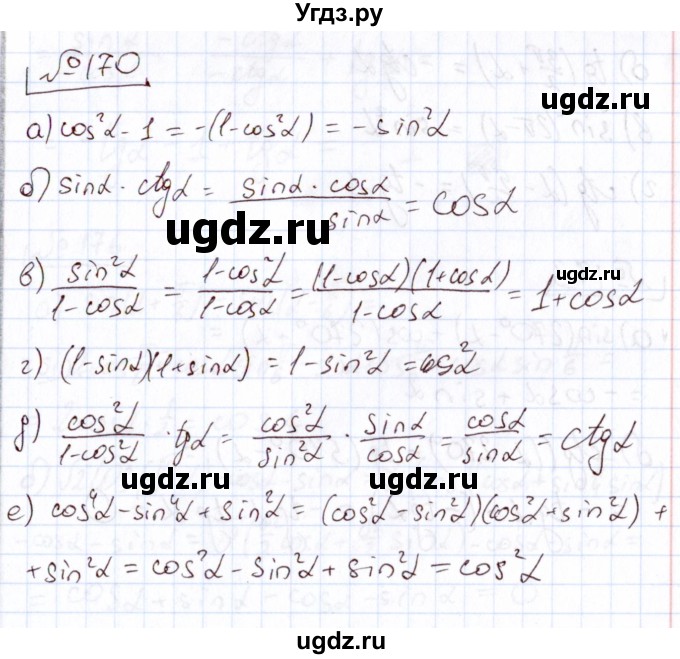 Угдз.ру
№170
а) cos²α - 1 = -(1-cos²α) = -sin²α
ugdz.ru
б) sinα · ctgα = sinα · cosα / sinα = cosα
ugdz.ru
в) sin²α / 1-cosα = 1-cos²α / 1-cosα = (1-cosα)(1+cosα) / 1-cosα = 1+cosα
ugdz.ru
г) (1-sinα)(1+sinα) = 1-sin²α = cos²α
д) cos²α / 1-cos²α · tgα = cos²α / sin²α · sinα / cosα = cosα / sinα = ctgα
ugdz.ru ugdz.ru
е) cos⁴α - sin⁴α + sin²α = (cos²α - sin²α)(cos²α + sin²α) +
+ sin²α = cos²α - sin²α + sin²α = cos²α
ugdz.ru
ugdz.ru